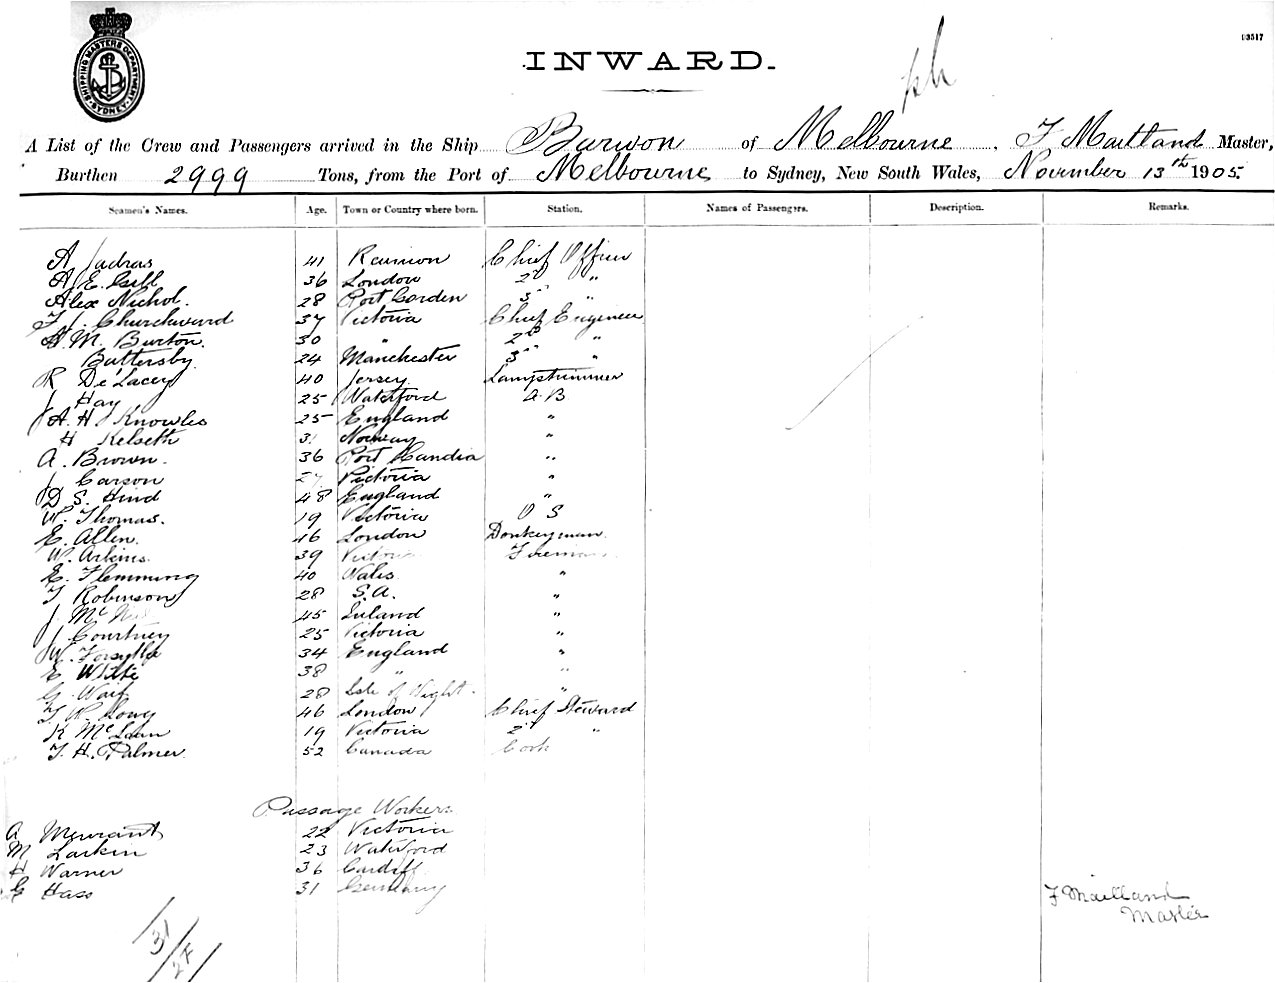 SHIPPING MASTERS DEPARTMENT SYDNEY
03517
INWARD.
A List of the Crew and Passengers arrived in the Ship Barwon of Melbourne, F Maitland Master,
Burthen 2999 Tons, from the Port of Melbourne to Sydney, New South Wales, November 13th 1905
Seamen's Names. Age. Town or Country where born. Station. Names of Passengers. Description. Remarks.
A Jadras 41 Reunion Chief Officer
A E. Gill 36 London 2d "
Alex Nichol. 28 Port Gorden 3d "
F J. Churchward 37 Victoria Chief Engineer
H. M. Burton. 30 " 2d "
Battersby. 24 Manchester 3d "
R De'Lacey 40 Jersey. Lamptrimmer
J Hay 25 Waterford A.B
A. H. Knowles 25 England "
H Kelseth 31 Norway "
A. Brown. 36 Port "
J Carson Victoria "
D S. Hind 48 England "
W. Thomas. 19 Victoria O S
E. Allen. 46 London Donkeyman.
W. 39 Victoria Fireman
E. Flemming 40 Wales. "
T Robinson 28 S.A. "
J. Mc 45 Ireland "
J Courtney 25 Victoria "
W. Forsythe 34 England "
E White 38 " "
G. Waif 28 Isle of Wight. "
T. W. 46 London Chief Steward
K McLean 19 Victoria 2d "
T. H. Palmer. 52 Canada Cook
Passage Workers.
A 22 Victoria
M Larkin 23 Waterford
H Warner 36 Cardiff
G Hass 31 Germany
F Maitland
Master
31/27